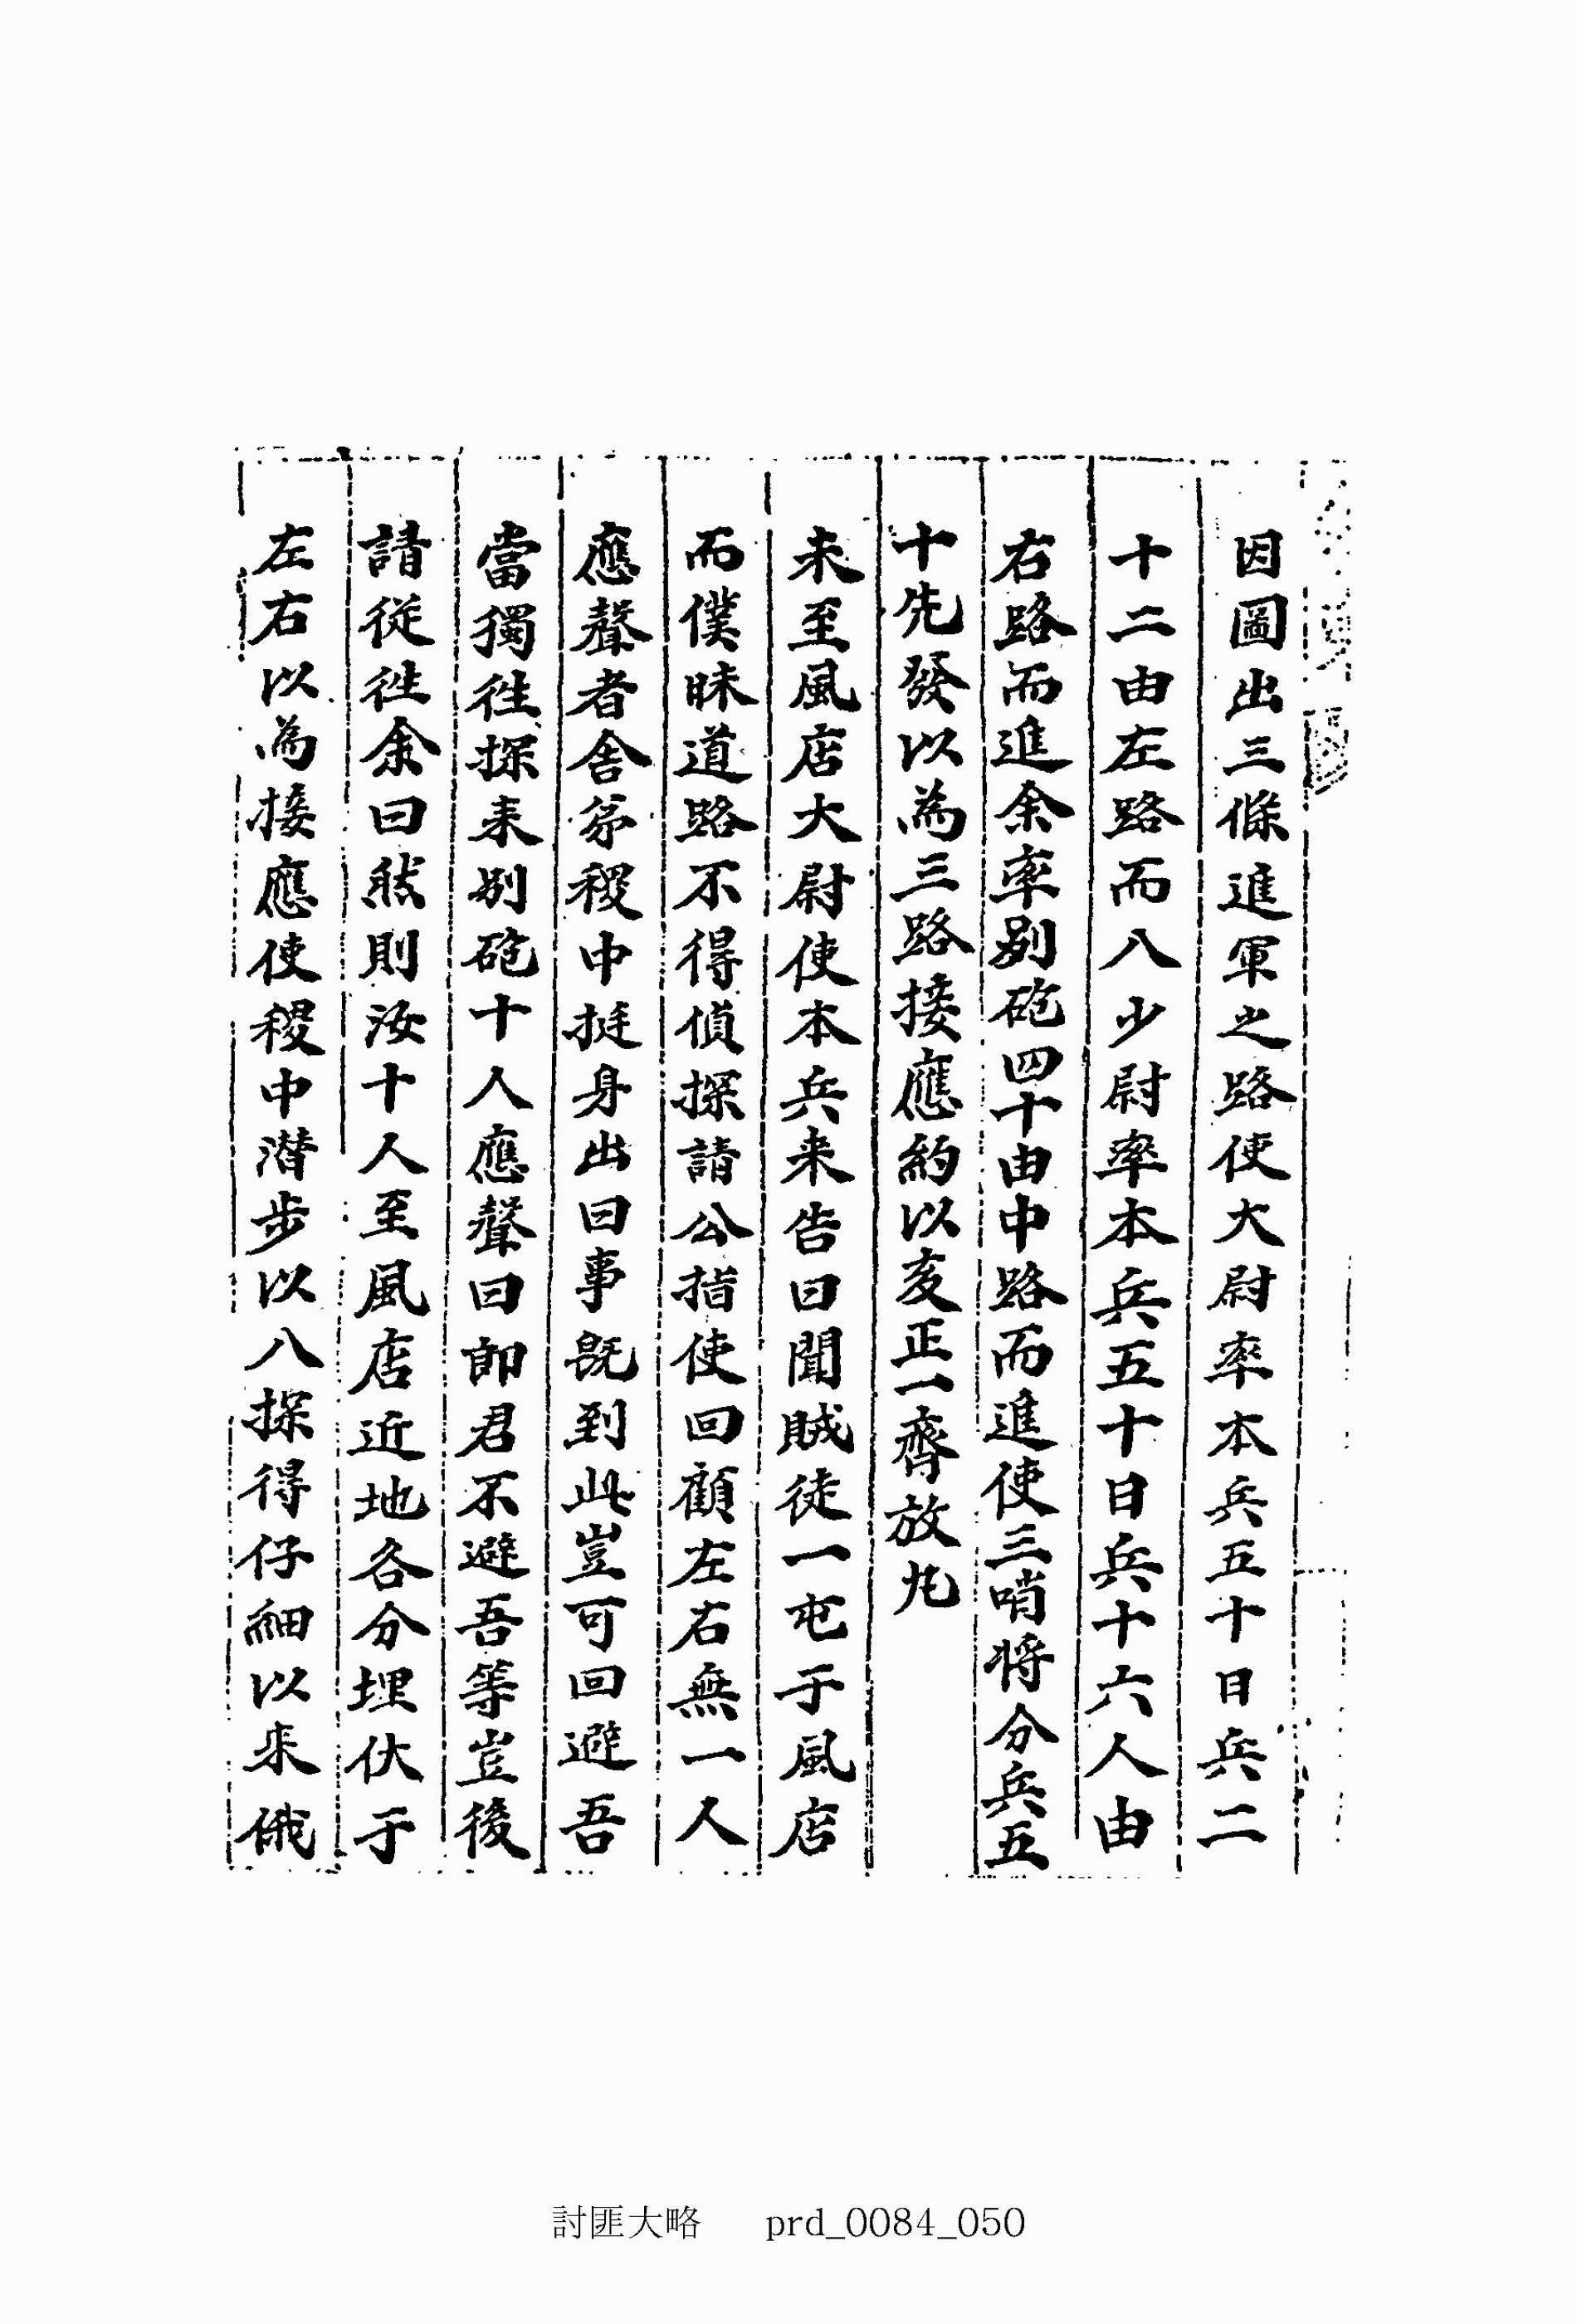 因圖出三條進軍之路使大尉率本兵五十日兵二
十二由左路而八少尉率本兵五十日兵十六人由
右路而進余率別砲四十由中路而進使三哨將分兵五
十先發以為三路接應約以亥正一齊放丸
未至風店大尉使本兵来告曰聞賊徒一屯于風店
而僕昧道路不得偵探請公指使回顧左右無一人
應聲者舍弟稷中挺身出曰事旣到此豈可回避吾
當獨徃探来別砲十人應聲曰郎君不避吾等豈後
請從徃余曰然則汝十人至風店近地各分埋伏于
左右以為接應使稷中潜步以八探得仔細以来俄
討匪大略 prd_0084_050